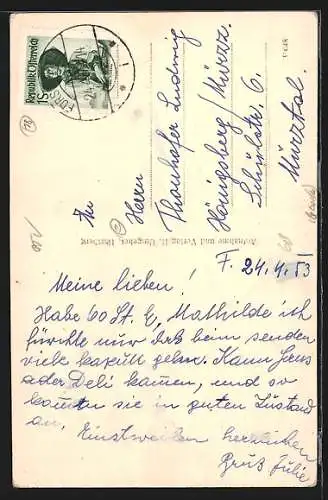 Republik Österreich
1 S
FÜRS
24.4
An
Herrn
Thonhofer Ludwig
Hönigsberg / Mürzz.
Schulstr. 6.
Mürztal.
Aufnahme und Verlag
F. 24.4.53
Meine lieben!
Habe 60 St. E, Mathilde ich
fürchte nur das beim senden
viele kaputt gehn. Kann Jens
oder Deli kommen, und so
kommten sie in guten Zustand
an. Einstweilen herzlichen
Gruß Julie